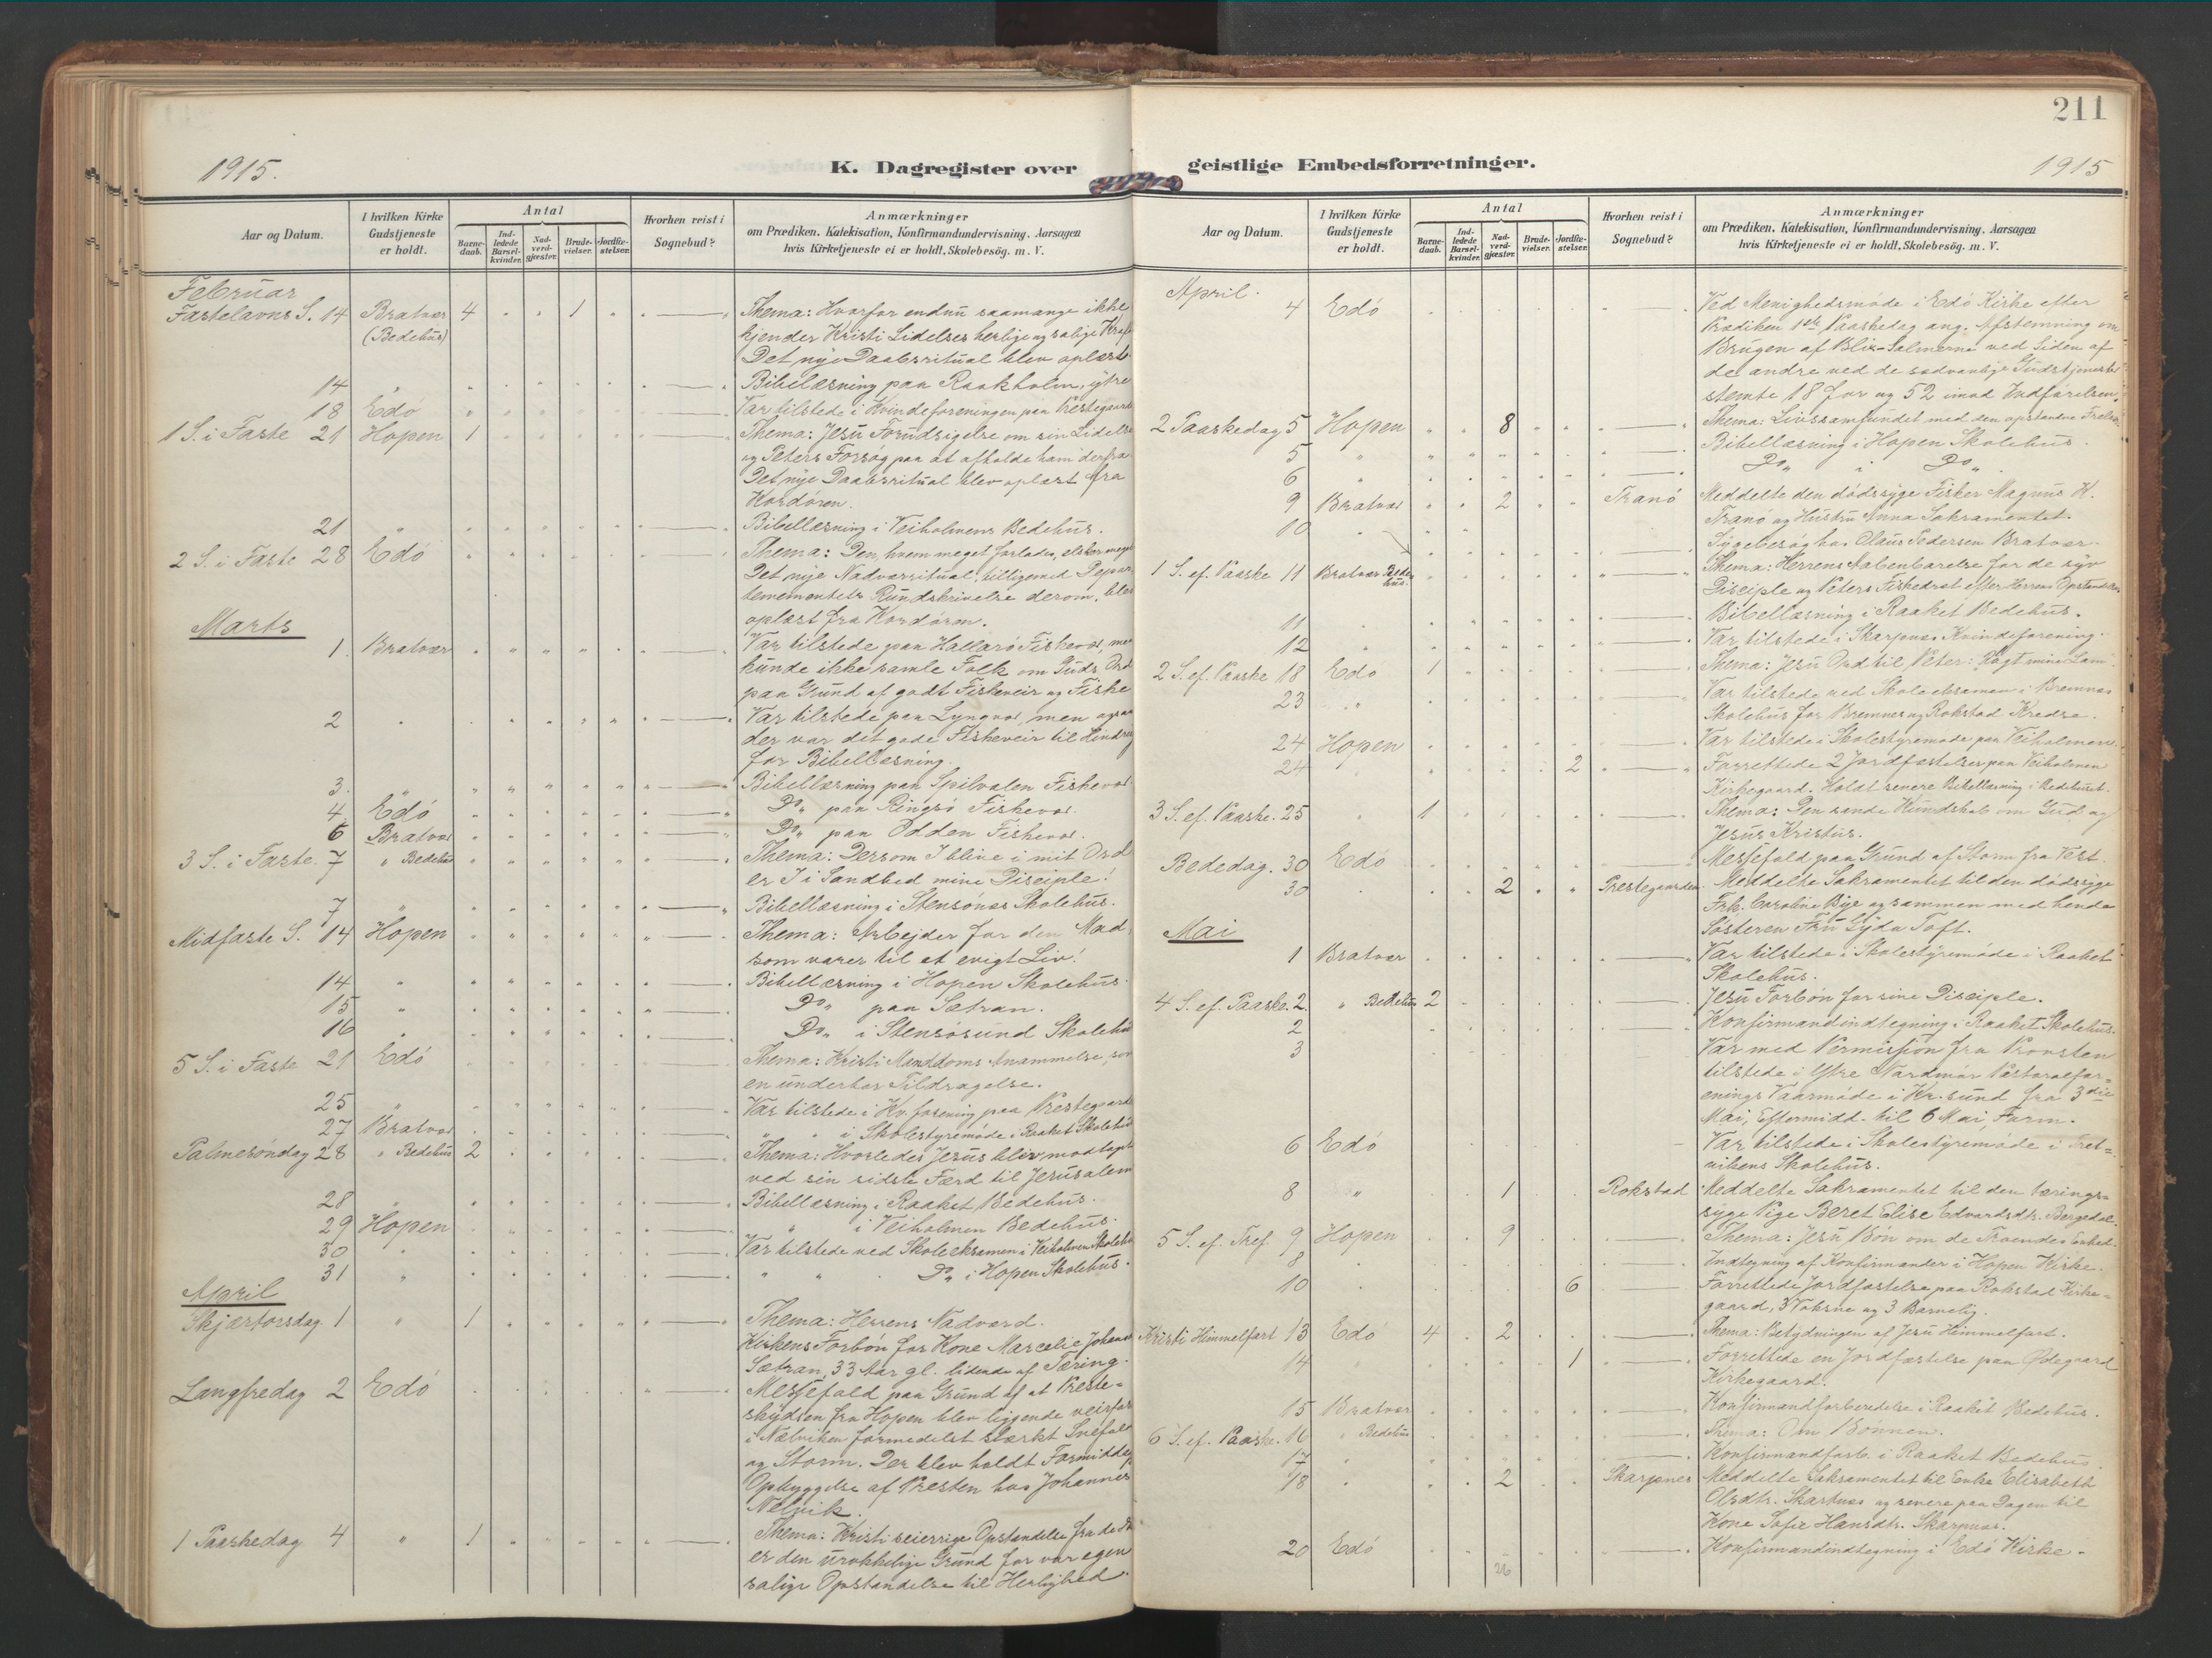 211
1915.
K. Dagregister over
geistlige Embedsforretninger.
1915
Aar og Datum.
I hvilken Kirke Gudstjeneste er holdt.
Antal
Barnedaab.
Indledede Barselkvinder.
Nadverdgjæster.
Brudevielser.
Jordfæstelser.
Hvorhen reist i Sognebud?
Anmærkninger
om Prædiken, Katekisation, Konfirmandundervisning, Aarsagen
hvis Kirketjeneste ei er holdt, Skolebesög. m. V.
Februar
Fastelavns S. 14 Bratvær 4 1 Thema: Hvorfor endnu saamange ikke
(Bedehus) kjender Kristi Lidelses herlige og salige Kraft
Det nye Daabsritual blev oplæst.
14 " Bibellæsning paa Raakholm, ytre
18 Edö Var tilstede i Kvindeforeningen paa Prestegaard
1 S. i Faste 21 Hopen 1 Thema: Jesu Forudsigelse om sin Lidelse
og Peters Forsøg paa at afholde ham derfra
Det nye Daabsritual blev oplæst fra
Kordören.
21 " Bibellæsning i Veiholmens Bedehus.
2 S. i Faste 28 Edö Thema: Den, hvem meget forlades, elsker meget
Det nye Nadverritual, tilligemed Depar
tementets Rundskrivelse derom, blev
oplæst fra Kordören.
Marts
1. Bratvær Var tilstede paa Hallarö Fiskevær, men
kunde ikke samle Folk om Guds Ord
paa Grund af godt Fiskeveir og Fiske
2 " Var tilstede paa Lyngvær, men ogsaa
der var det gode Fiskeveir til Hindring
for Bibellæsning.
3. " Bibellæsning paa Spilvalen Fiskevær
4 Edö Do paa Ringsö Fiskevær.
6 Bratvær Do paa Odden Fiskevær.
3 S. i Faste. 7 " Bedehus Thema: Dersom I blive i mit Ord
er I i Sandhed mine Disciple!
7 " Bibellæsning i Stensönes Skolehus.
Midfaste S. 14 Hopen Thema: Arbejder for den Mad
som varer til et evigt Liv!
14 " Bibellæsning i Hopen Skolehus.
15 " Do paa Sætran.
16 " Do i Stensösund Skolehus
5 S. i Faste 21 Edö Thema: Kristi Manddoms Anammelse, som
en underbar Tildragelse.
25 " Var tilstede i Kv.forening paa Prestegaard
27 Bratvær " " i Skolestyremöde i Raaket Skolehus
Palmesöndag 28 " Bedehus 2 Thema: Hvorledes Jesus blev modtaget
ved sin sidste Færd til Jerusalem
28 " Bibellæsning i Raaket Bedehus.
29 Hopen " i Veiholmen Bedehus.
30 " Var tilstede ved Skoleeksamen i Veiholmen Skolehus
31 " " " Do i Hopen Skolehus.
April
Skjærtorsdag 1 " 1 Thema: Herrens Nadverd.
Kirkens Forbön for Kone Marcelie
Sætran, 33 Aar gl. lidende af Tæring.
Langfredag 2 Edö Messefald paa Grund af at Preste=
skydsen fra Hopen blev liggende veirfast
i Nælviken formedelst stærkt Snefald
og Storm. Der blev holdt Formiddags
Opbyggelse af Presten hos Johannes
Nelvik.
1 Paaskedag 4 " 1 Thema: Kristi seierrige Opstandelse fra de Döde
er den urokkelige Grund for vor egen
salige Opstandelse til Herlighed.
Aar og Datum.
I hvilken Kirke Gudstjeneste er holdt.
Antal
Barnedaab.
Indledede Barselkvinder.
Nadverdgjæster.
Brudevielser.
Jordfæstelser.
Hvorhen reist i Sognebud?
Anmærkninger
om Prædiken, Katekisation, Konfirmandundervisning, Aarsagen
hvis Kirketjeneste ei er holdt, Skolebesög. m. V.
April.
4 Edö Ved Menighedsmöde i Edö Kirke efter
Prædiken 1ste Paaskedag ang. Afstemning om
Brugen af Blix-Salmerne ved Siden af
de andre ved de sædvanlige Gudstjenester
stemte 18 for og 52 imod Indførelsen.
2 Paaskedag 5 Hopen 8 Thema: Livssamfundet med den opstandne Frelser
5 " Bibellæsning i Hopen Skolehus.
6 " Do i Do
9 Bratvær 2 Tranö Meddelte den dödssyge Fisker Magnus K.
Tranö og Hustru Anna Sakramentet.
10 Sygebesög hos Olaus Pedersen Bratvær.
1 S. ef. Paaske 11 Bratvær Bedehus. Thema: Herrens Aabenbarelse for de syv
Disciple og Peters Fiskedræt efter Herrens Opstandelse
11 Bibellæsning i Raaket Bedehus.
12 Var tilstede i Skarpnes Kvindeforening.
2 S. ef. Paaske 18 Edö 1 Thema: Jesu Ord til Peter: Vogt mine Lam.
23 " Var tilstede ved Skoleeksamen i Bremnes
Skolehus for Bremnes og Rokstad Kredse.
24 Hopen Var tilstede i Skolestyremöde paa Veiholmen.
24 2 Forrettede 2 Jordfæstelser paa Veiholmen
Kirkegaard. Holdt senere Bibellæsning i Bedehuset.
3 S. ef. Paaske. 25 " 1 Thema: Den sande Kundskab om Gud og
Jesus Kristus.
Bededag. 30 Edö Messefald paa Grund af Storm fra Vest.
30 " 2 Prestegaarden. Meddelte Sakramentet til den dödssyge
Frk. Caroline Bye og sammen med hende
Sösteren Fru Lyda Toft.
Mai
1 Bratvær Var tilstede i Skolestyremöde i Raaket
Skolehus.
4 S. ef. Paaske. 2. " Bedehus 2 Jesu Forbön for sine Disciple.
2 Konfirmandindtegning i Raaket Skolehus.
3 Var med Permission fra Provsten
tilstede i Ytre Nordmör Pastoralfor=
enings Vaarmöde i Kr.sund fra 3die
Mai, Eftermidd. til 6 Mai, Form.
6 Edö Var tilstede i Skolestyremöde i
vikens Skolehus.
8 " 1 Rokstad Meddelte Sakramentet til den tærings=
syge Pige Beret Elise Edvardsdtr. Bergedal.
5 S. ef. Tref. 9 Hopen 9 Thema: Jesu Bön om de Troendes Enhed.
8 Indtegning af Konfirmander i Hopen Kirke.
10 " 6 Forrettede Jordfæstelse paa Rokstad Kirke=
gaard, 3 Voksne og 3 Barnelig.
Kristi Himmelfart 13 Edö 4 2 Thema: Betydningen af Jesu Himmelfart.
14 " 1 Forrettede en Jordfæstelse paa Ødegaard
Kirkegaard.
15 Bratvær Konfirmandforberedelse i Raaket Bedehus.
6 S. ef. Paaske. 16 " Bedehus Thema: Om Bönnen.
17 " Konfirmandforb. i Raaket Bedehus.
18 " 2 Skarpnes Meddelte Sakramentet til Enke Elisabeth
Olsdtr. Skarpnes og senere paa Dagen til
Kone Sofie Hansdtr. Skarpnes.
20 Edö Konfirmandindtegning i Edö Kirke.
26